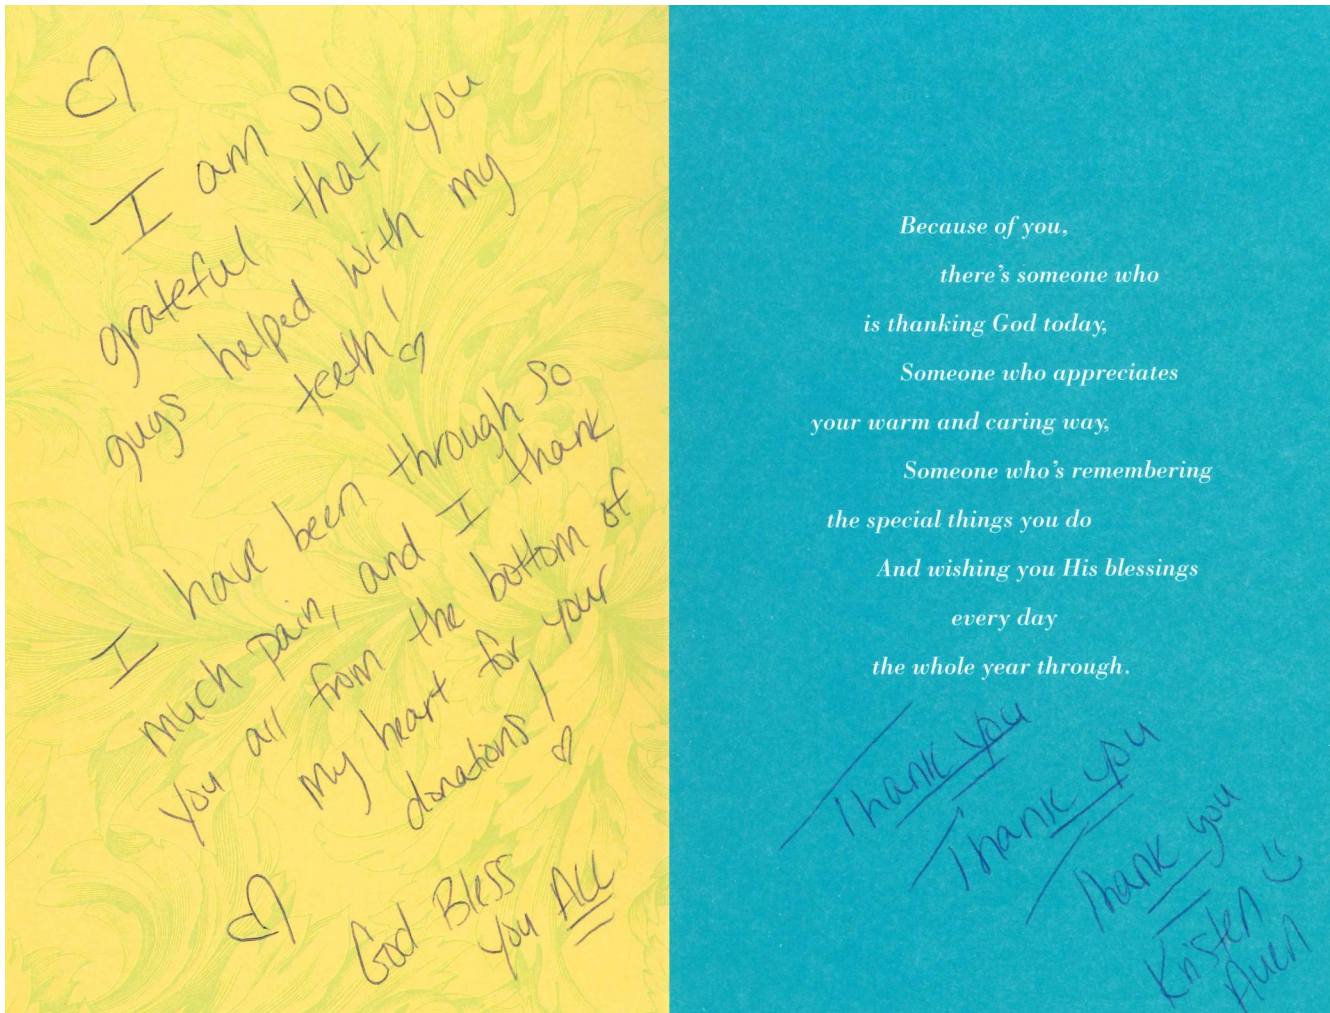 I am So
grateful that you
guys helped with my
teeth!
I have been through so
much pain, and I thank
you all from the bottom of
my heart for your
donations!
God Bless
you ALL
Because of you,
there's someone who
is thanking God today,
Someone who appreciates
your warm and caring way,
Someone who's remembering
the special things you do
And wishing you His blessings
every day
the whole year through.
Thank you
Thank you
Thank you
Kristen